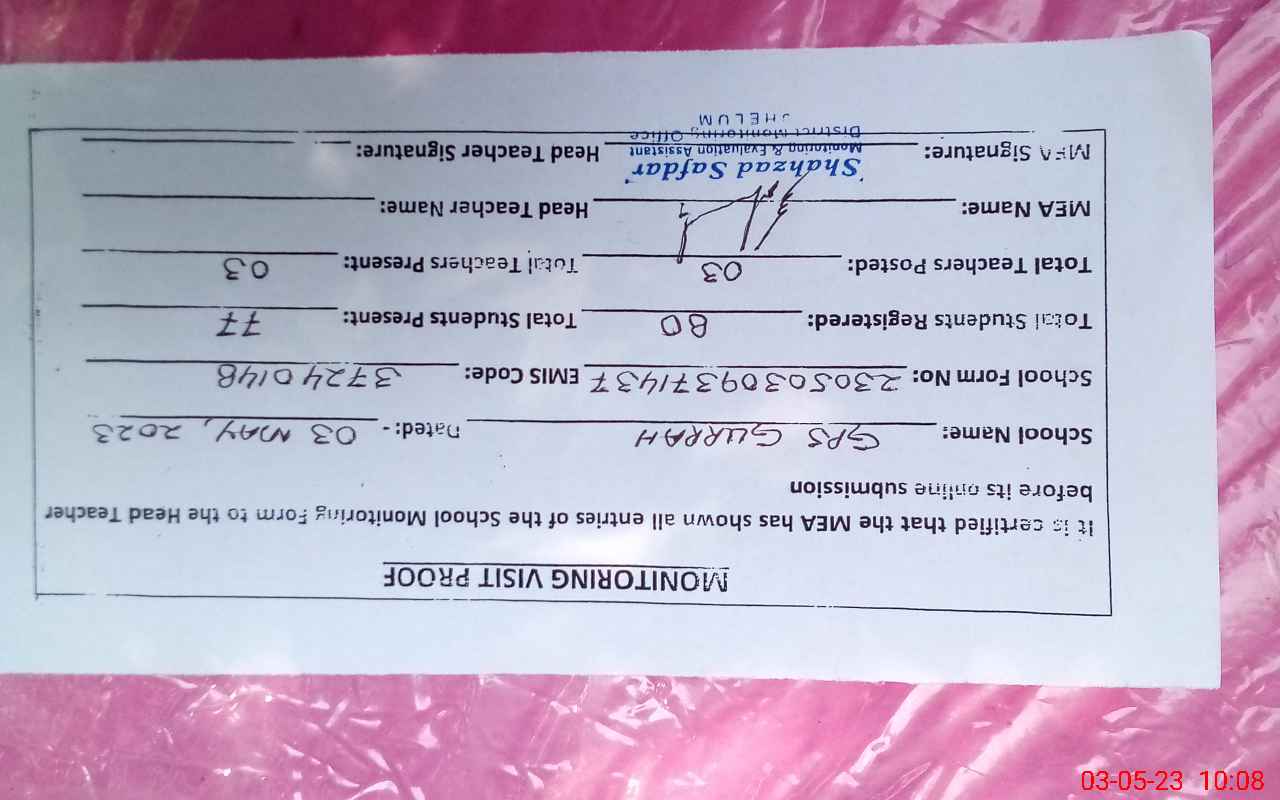 MONITORING VISIT PROOF
It is certified that the MEA has shown all entries of the School Monitoring Form to the Head Teacher
before its online submission
School Name: GPS GURRAH Dated:- 03 MAY, 2023
School Form No: 23050309371437 EMIS Code: 37240148
Total Students Registered: 80 Total Students Present: 77
Total Teachers Posted: 03 Total Teachers Present: 03
MEA Name: Head Teacher Name:
MEA Signature: Head Teacher Signature:
Shahzad Safdar
Monitoring & Evaluation Assistant
District Monitoring Office
JHELUM
03-05-23 10:08